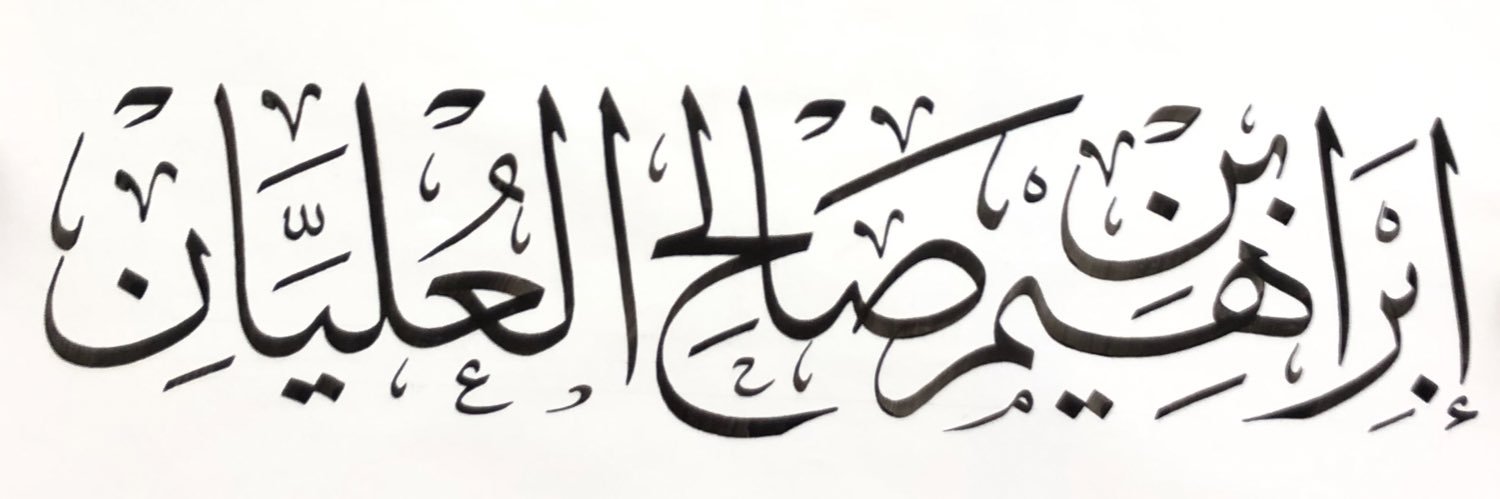 إِبْرَاهِيمَ بْنِ صَالِحِ الْعُلَيَّانِ